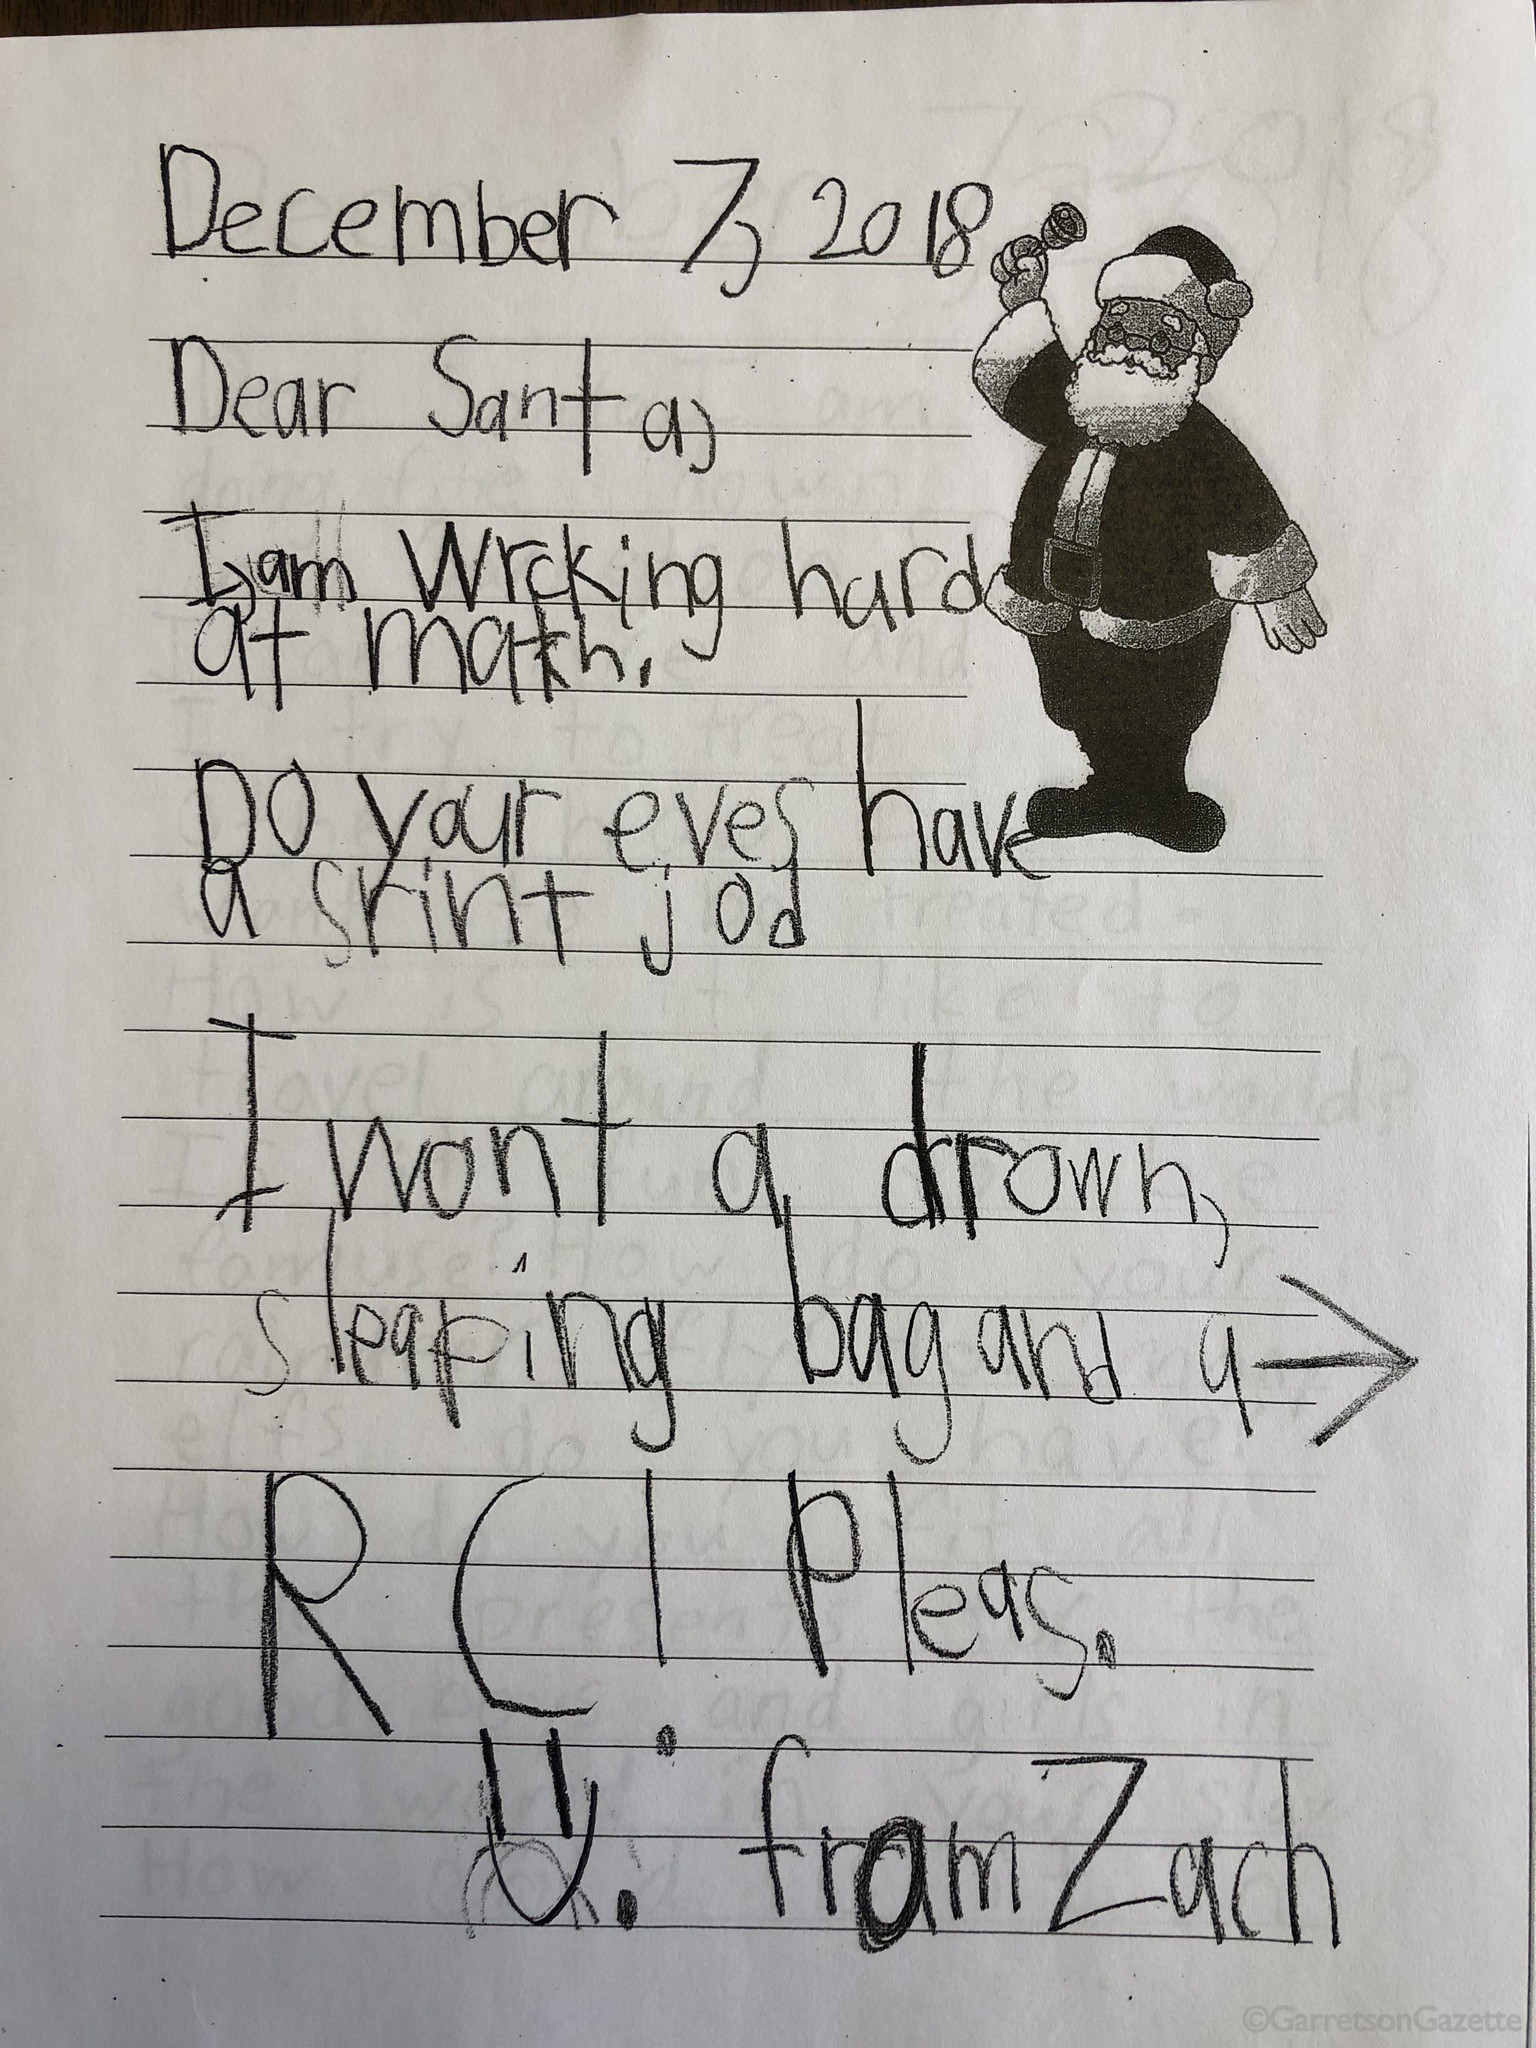 December 7, 2018
Dear Santa,
I am Wrcking hard
at math.
Do your eves have
a srint jod
I wont a drown,
sleaping bag and a →
R C 1 Pleas.
fram Zach
©GarretsonGazette